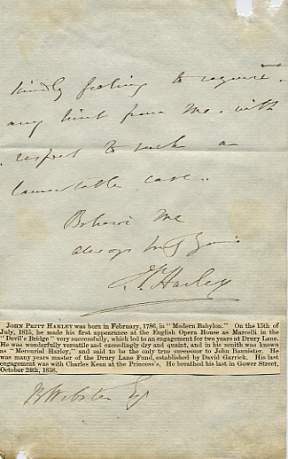 kindly feeling to require
any hint from me, with
respect to such a
lamentable case.
Believe me
always
J P Harley
JOHN PRITT HARLEY was born in February, 1786, in "Modern Babylon." On the 15th of
July, 1815, he made his first appearance at the English Opera House as Marcelli in the
"Devil's Bridge" very successfully, which led to an engagement for two years at Drury Lane.
He was wonderfully versatile and exceedingly dry and quaint, and in his zenith was known
as "Mercurial Harley," and said to be the only true successor to John Bannister. He
was many years master of the Drury Lane Fund, established by David Garrick. His last
engagement was with Charles Kean at the Princess's. He breathed his last in Gower Street,
October 28th, 1858.
B Webster Esq